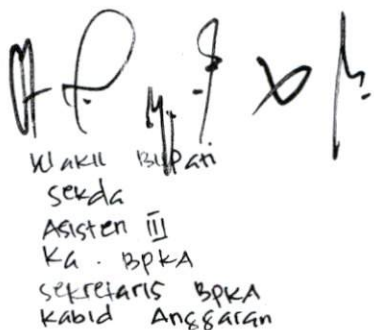 Wakil Bupati
Sekda
Asisten III
Ka. BPKA
Sekretaris BPKA
Kabid Anggaran